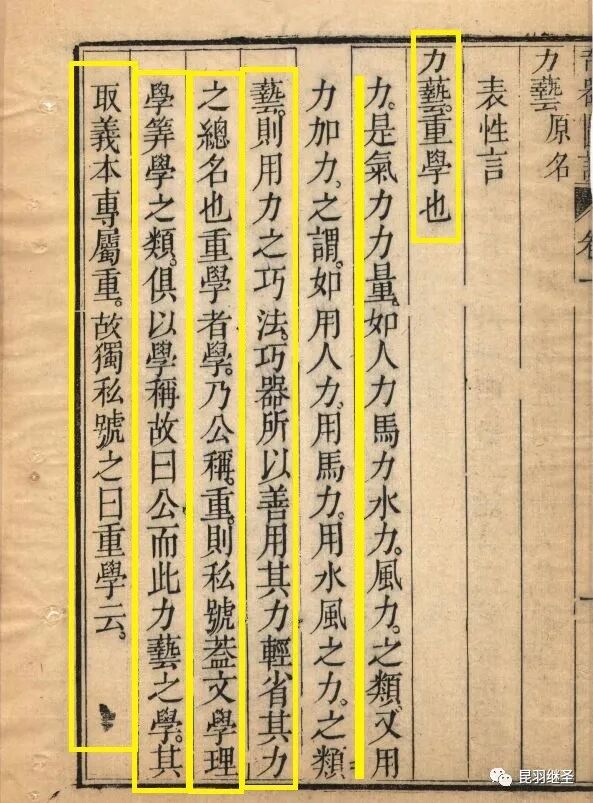 力藝原名
表性言
力藝。重學也
力。是氣力力量。如人力馬力水力。風力。之類又用
力加力。之謂。如用人力。用馬力。用水風之力。之類
藝。則用力之巧法。巧器所以善用其力輕省其力
之總名也重學者學。乃公稱。重。則私號蓋文學理
學筭學之類。俱以學稱故曰公而此力藝之學。其
取義本專屬重。故獨私號之曰重學云。
昆羽继圣